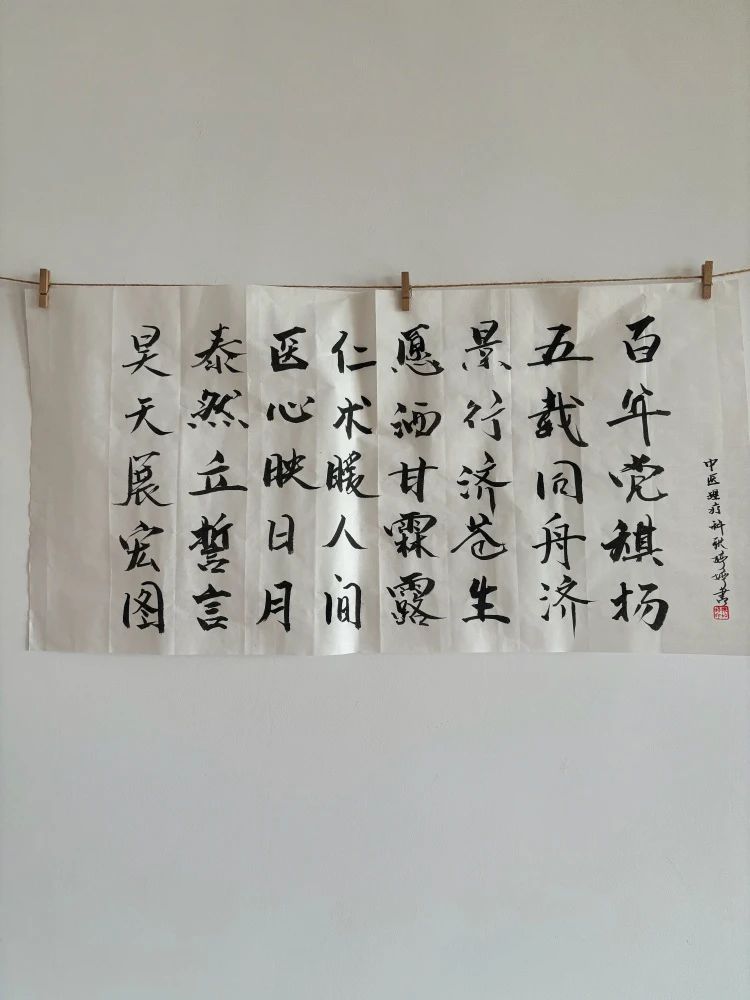 中医理疗科婷婷书
百年党旗扬
五载同舟济
景行济苍生
愿洒甘霖露
仁术暖人间
医心映日月
泰然立誓言
昊天展宏图